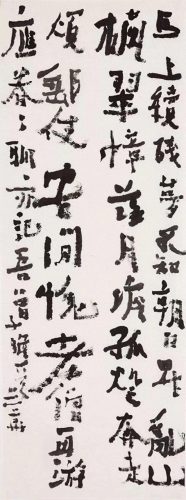 馬上續殘夢不知朝日昇亂山
橫翠幛落月澹孤燈奔走
煩郵使安閒愧老僧再游
應眷々聊亦記吾曾子瞻